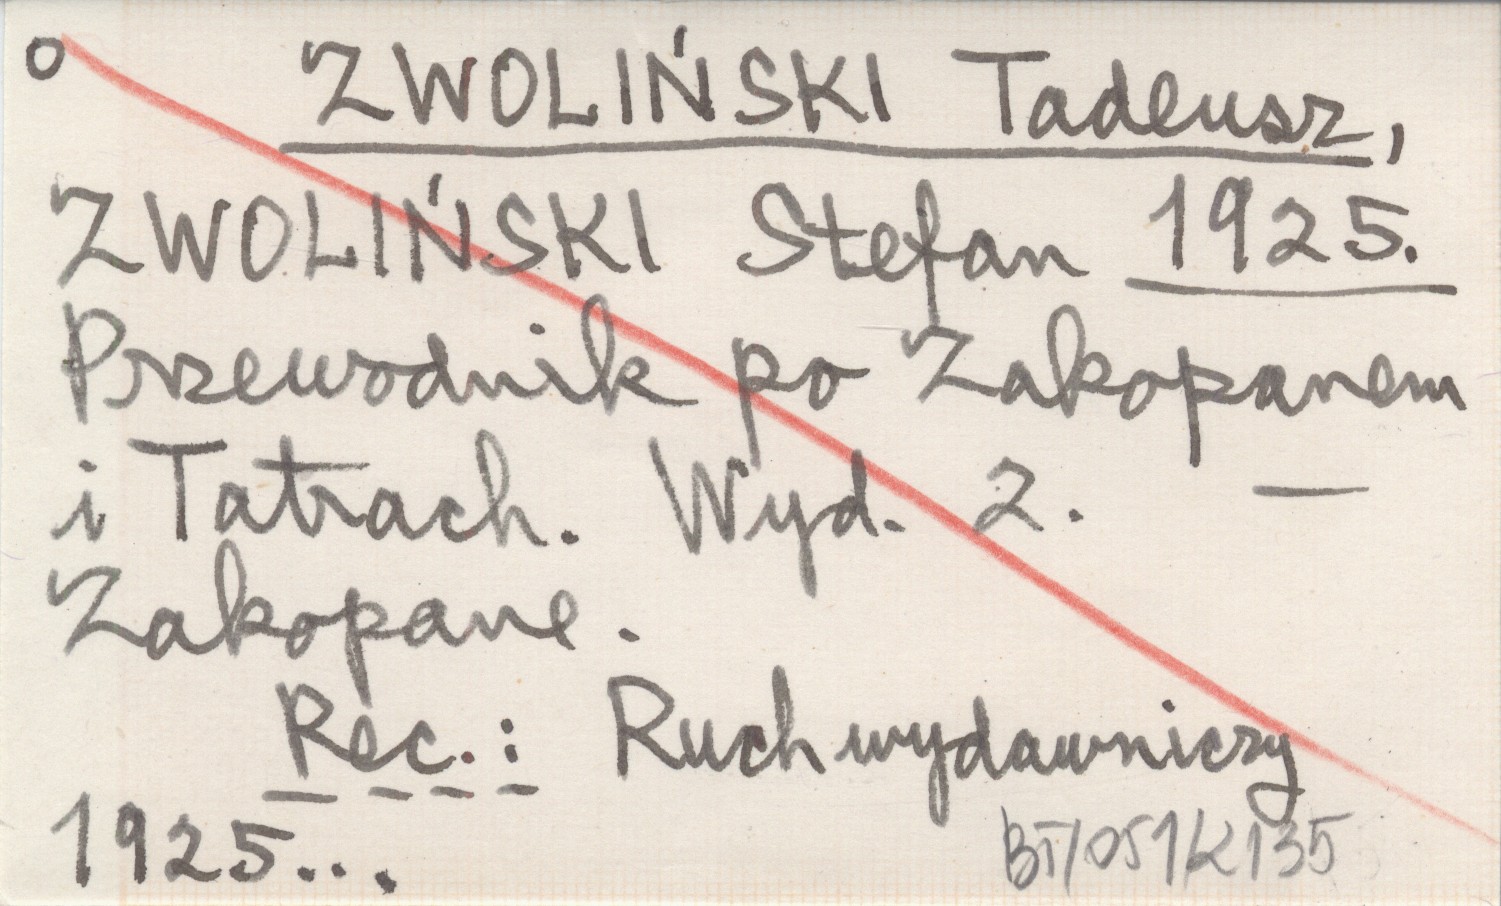 o ZWOLIŃSKI Tadeusz,
ZWOLIŃSKI Stefan 1925.
Przewodnik po Zakopanem
i Tatrach. Wyd. 2. —
Zakopane.
Rec.: Ruch wydawniczy
1925...
BT/051/2135